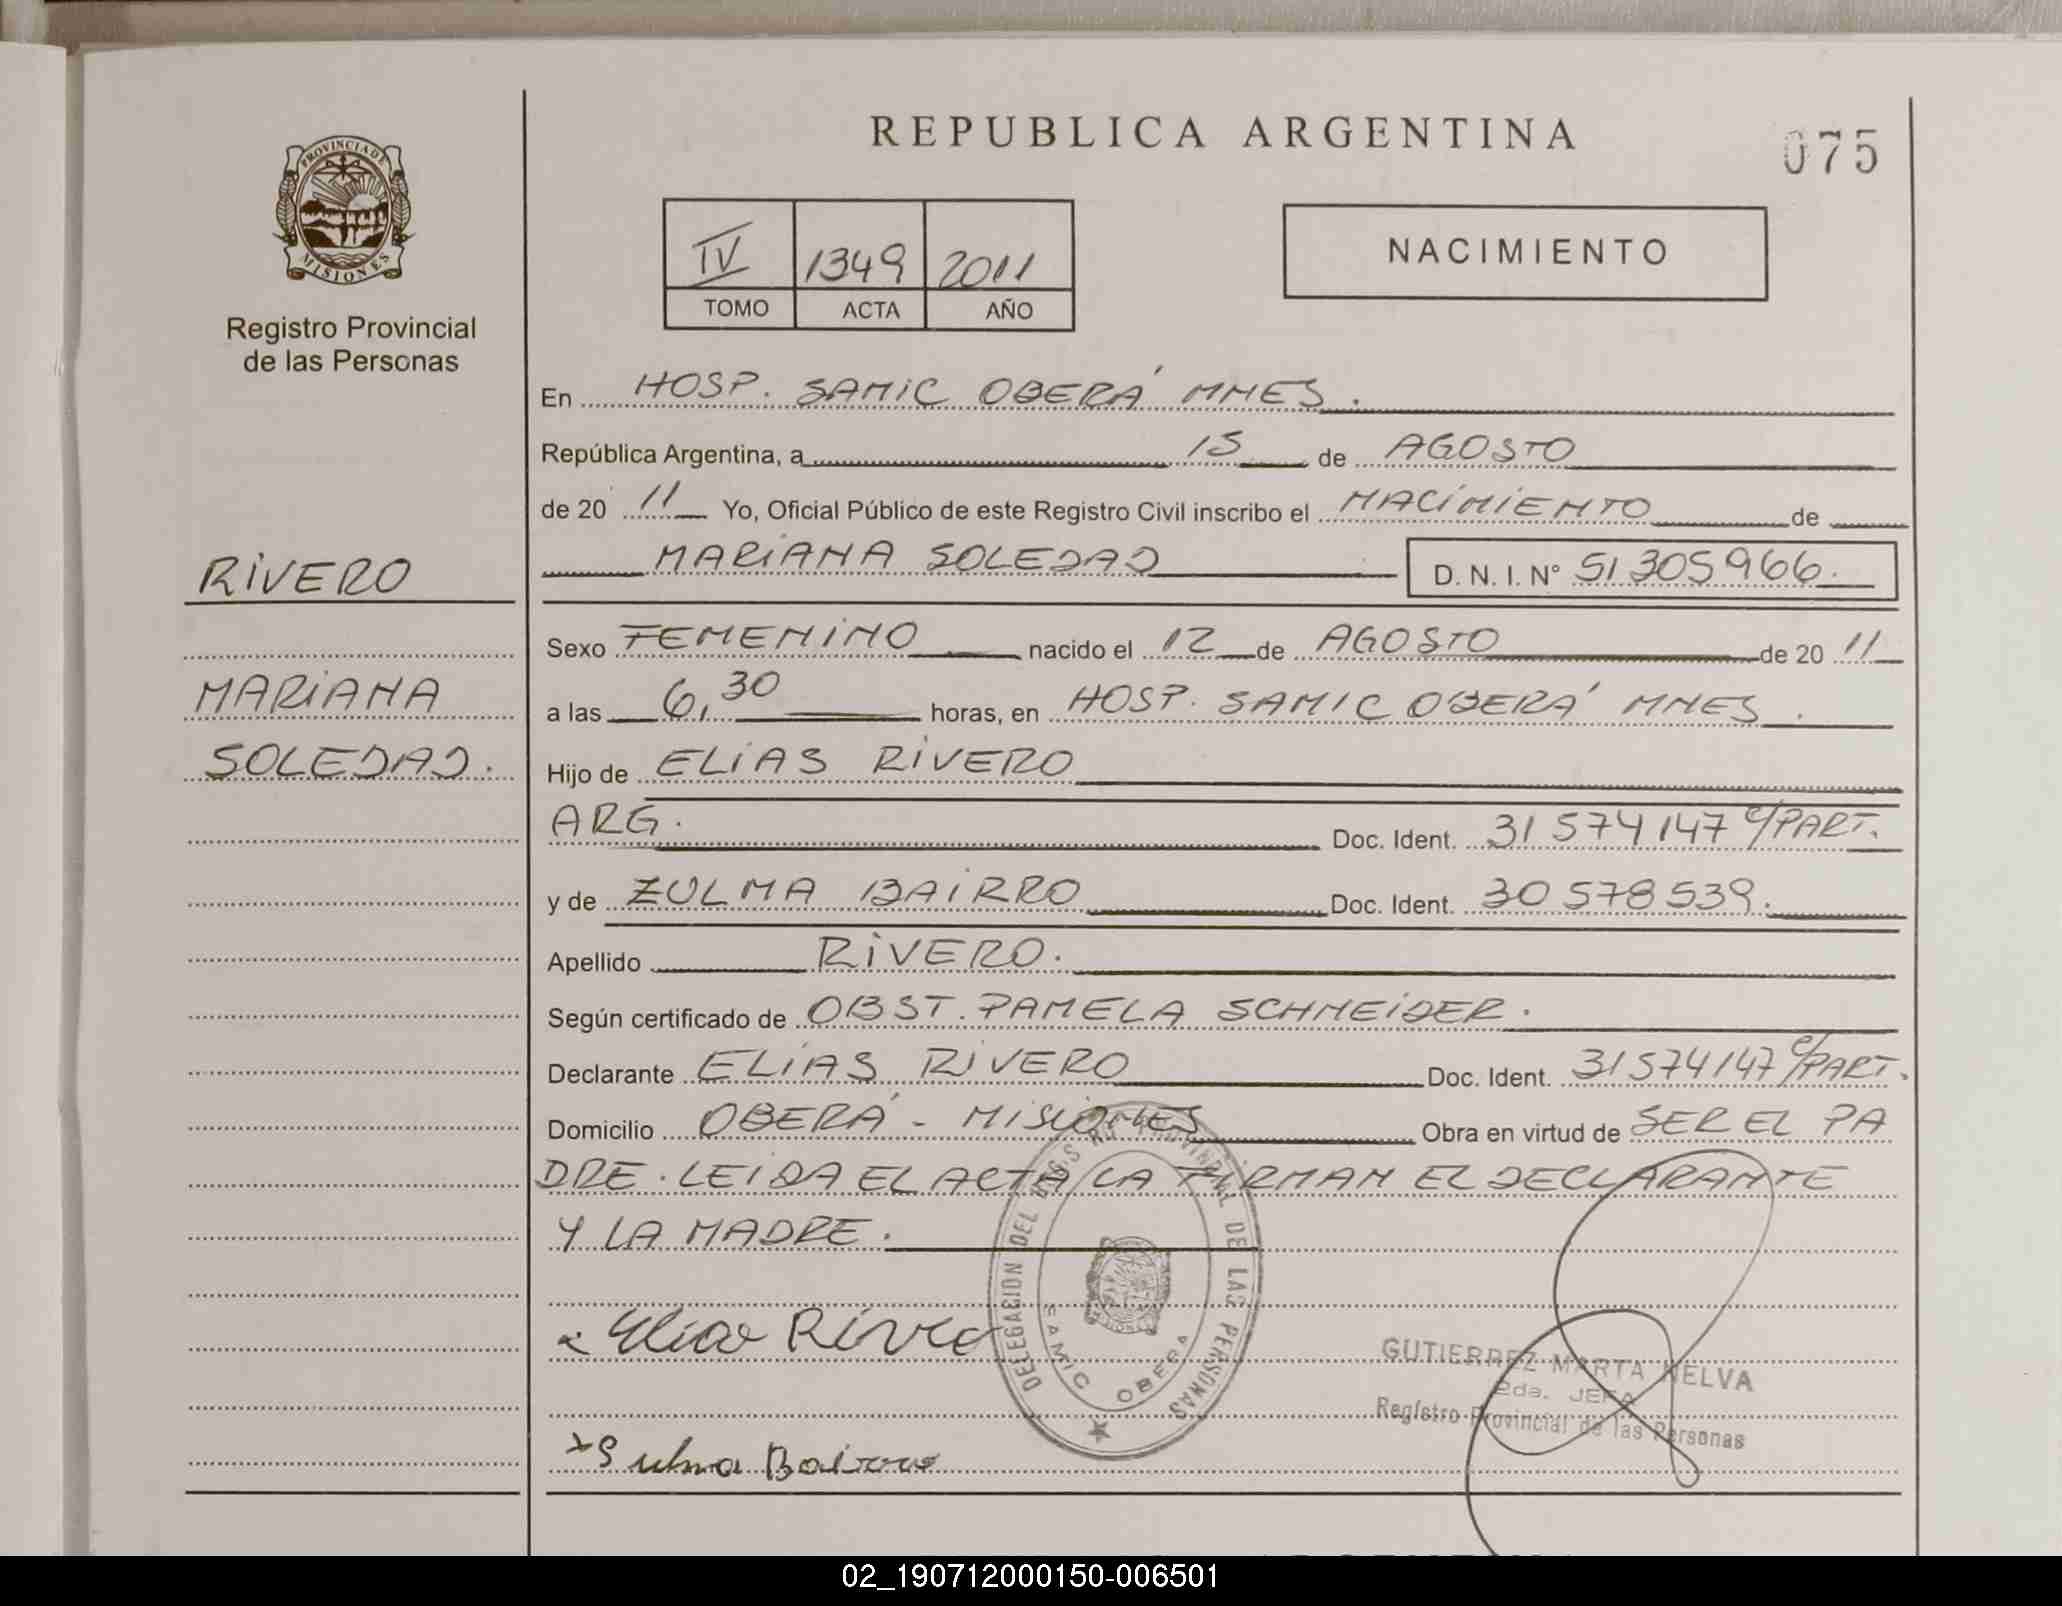 REPUBLICA ARGENTINA
075
PROVINCIA DE MISIONES
Registro Provincial
de las Personas
IV 1349 2011
TOMO ACTA AÑO
NACIMIENTO
En HOSP. SAMIC OBERÁ MNES.
República Argentina, a 15 de AGOSTO
de 20 11 Yo, Oficial Público de este Registro Civil inscribo el NACIMIENTO de
MARIANA SOLEDAD D. N. I. N° 51305966.
RIVERO
MARIANA
SOLEDAD.
Sexo FEMENINO nacido el 12 de AGOSTO de 20 11
a las 6,30 horas, en HOSP. SAMIC OBERÁ MNES.
Hijo de ELIAS RIVERO
ARG. Doc. Ident. 31574147 c/PART.
y de ZULMA BAIRRO Doc. Ident. 30578539.
Apellido RIVERO.
Según certificado de OBST. PAMELA SCHNEIDER.
Declarante ELIAS RIVERO Doc. Ident. 31574147 c/PART.
Domicilio OBERÁ - MISIONES Obra en virtud de SER EL PA
DRE. LEIDA EL ACTA LA FIRMAN EL DECLARANTE
Y LA MADRE.
DELEGACION DEL PROVINCIAL DE LAS PERSONAS
SAMIC OBERA
Elias Rivero
GUTIERREZ MARTA NELVA
2da. JEFA
Registro Provincial de las Personas
Bairro
02_190712000150-006501